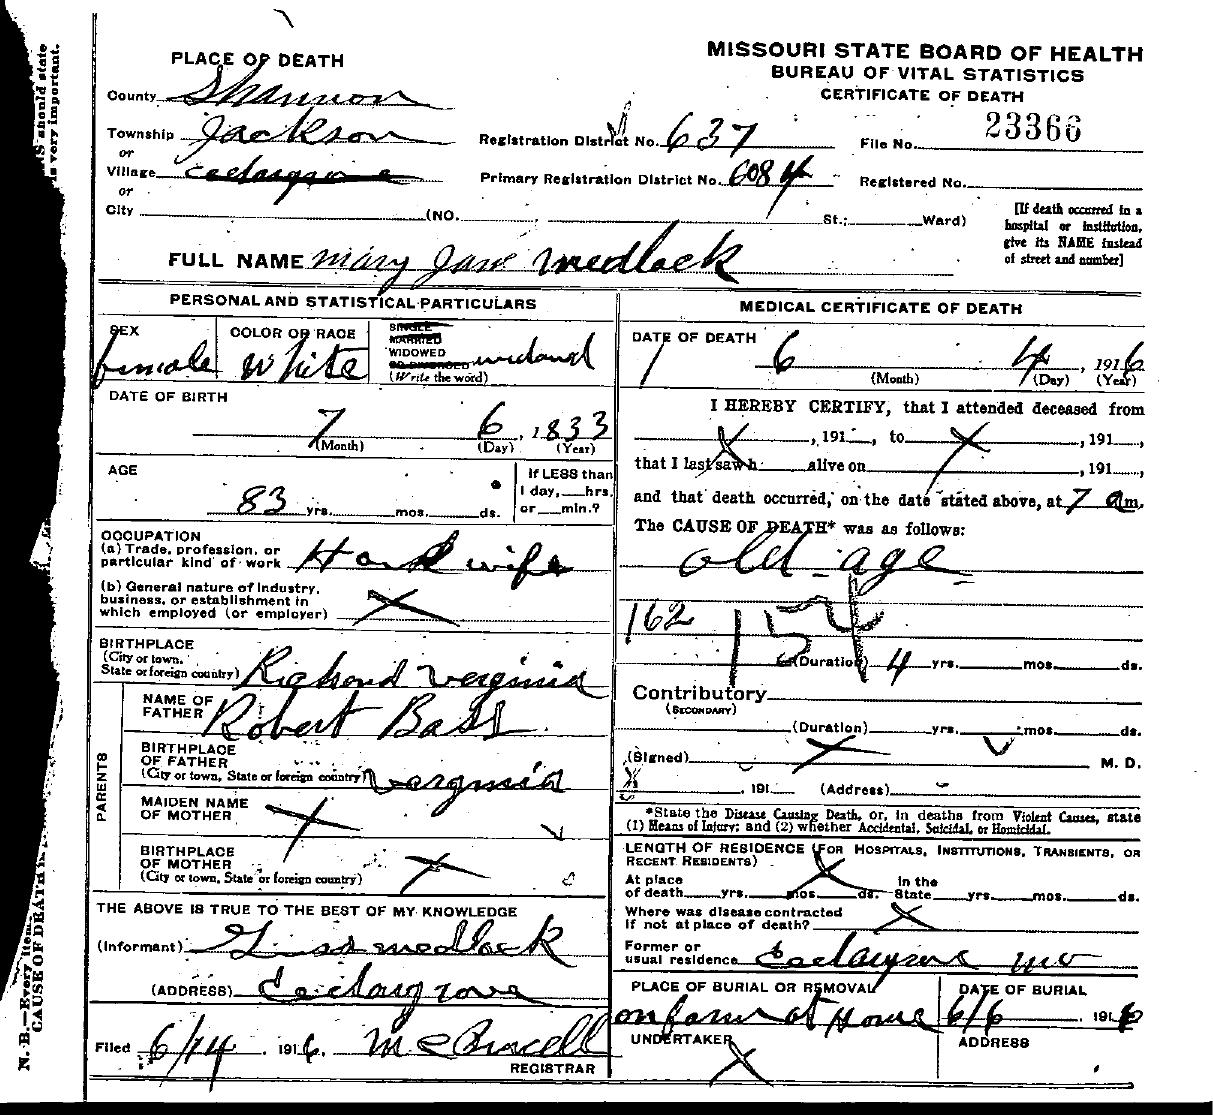 MISSOURI STATE BOARD OF HEALTH
BUREAU OF VITAL STATISTICS
CERTIFICATE OF DEATH
PLACE OF DEATH
County Shannon
Township Jackson
or
Village Cedargrove
or
City (NO. St.; Ward)
Registration District No. 637
File No. 23366
Primary Registration District No. 6084
Registered No.
[If death occurred in a
hospital or institution,
give its NAME instead
of street and number]
FULL NAME Mary Jane Medlock
PERSONAL AND STATISTICAL PARTICULARS
SEX
female
COLOR OR RACE
White
SINGLE
MARRIED
WIDOWED
OR DIVORCED
(Write the word)
DATE OF BIRTH
7 6, 1833
(Month) (Day) (Year)
AGE
83 yrs. mos. ds.
If LESS than
1 day, hrs.
or min.?
OCCUPATION
(a) Trade, profession, or
particular kind of work
wife
(b) General nature of Industry,
business, or establishment in
which employed (or employer) X
BIRTHPLACE
(City or town,
State or foreign country) Richond Verginia
PARENTS
NAME OF
FATHER Robert Bass
BIRTHPLACE
OF FATHER
(City or town, State or foreign country) Verginia
MAIDEN NAME
OF MOTHER X
BIRTHPLACE
OF MOTHER
(City or town, State or foreign country) X
THE ABOVE IS TRUE TO THE BEST OF MY KNOWLEDGE
(Informant) medlock
(ADDRESS) Cedargrove
Filed 6/14, 1916.
REGISTRAR
MEDICAL CERTIFICATE OF DEATH
DATE OF DEATH
6 4, 1916
(Month) (Day) (Year)
I HEREBY CERTIFY, that I attended deceased from
X, 191, to X, 191,
that I last saw h alive on, 191,
and that death occurred, on the date stated above, at 7 am.
The CAUSE OF DEATH* was as follows:
old age
162 154
(Duration) 4 yrs. mos. ds.
Contributory
(SECONDARY)
(Duration) yrs. mos. ds.
(Signed) X M. D.
, 191 (Address)
*State the Disease Causing Death, or, in deaths from Violent Causes, state
(1) Means of Injury; and (2) whether Accidental, Suicidal, or Homicidal.
LENGTH OF RESIDENCE (FOR HOSPITALS, INSTITUTIONS, TRANSIENTS, OR
RECENT RESIDENTS)
At place
of death yrs. mos. ds.
In the
State yrs. mos. ds.
Where was disease contracted
if not at place of death? X
Former or
usual residence Cedargrove mo
PLACE OF BURIAL OR REMOVAL
on farm at Home
DATE OF BURIAL
6/6, 1916
UNDERTAKER
X
ADDRESS
N. B.—Every item
CAUSE OF DEATH
S should state
is very important.